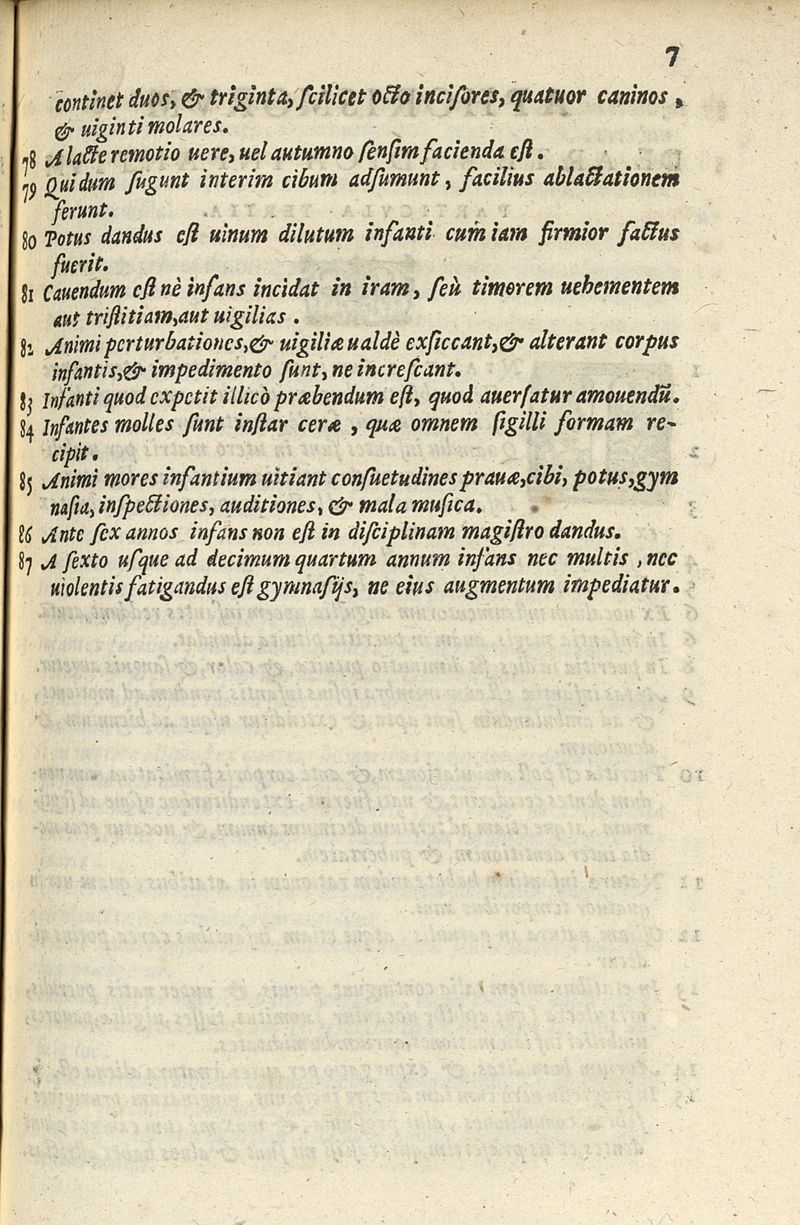 7
continet duos, & triginta, ſcilicet octo inciſores, quatuor caninos,
& uiginti molares.
78 A lacte remotio uere, uel autumno ſenſim facienda eſt.
79 Qui dum ſugunt interim cibum adſumunt, facilius ablactationem
ferunt.
80 Potus dandus eſt uinum dilutum infanti cum iam firmior factus
fuerit.
81 Cauendum eſt nè infans incidat in iram, ſeù timorem uehementem
aut triſtitiam, aut uigilias.
82 Animi perturbationes, & uigiliæ ualdè exſiccant, & alterant corpus
infantis, & impedimento ſunt, ne increſcant.
83 Infanti quod expetit illicò præbendum eſt, quod auerſatur amouendũ.
84 Infantes molles ſunt inſtar ceræ, quæ omnem ſigilli formam re-
cipit.
85 Animi mores infantium uitiant conſuetudines prauæ, cibi, potus, gym
naſia, inſpectiones, auditiones, & mala muſica.
86 Ante ſex annos infans non eſt in diſciplinam magiſtro dandus.
87 A ſexto uſque ad decimum quartum annum infans nec multis, nec
uiolentis fatigandus eſt gymnaſijs, ne eius augmentum impediatur.